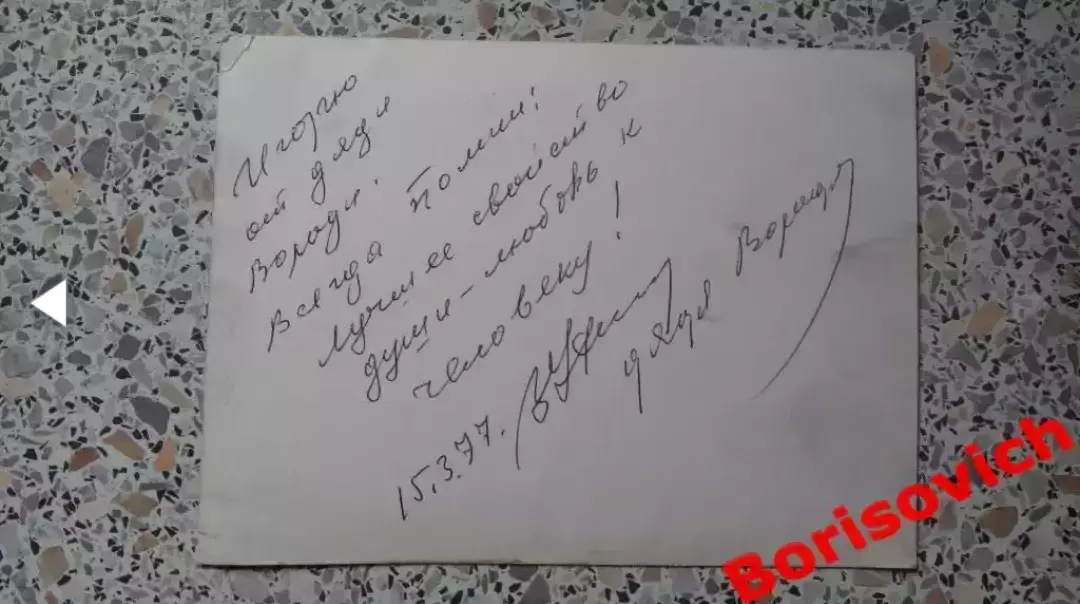 Игорю
от дяди
Володи.
Всегда помни:
лучшее свойство
души – любовь к
человеку!
15.3.77.
дядя Володя
Borisovich